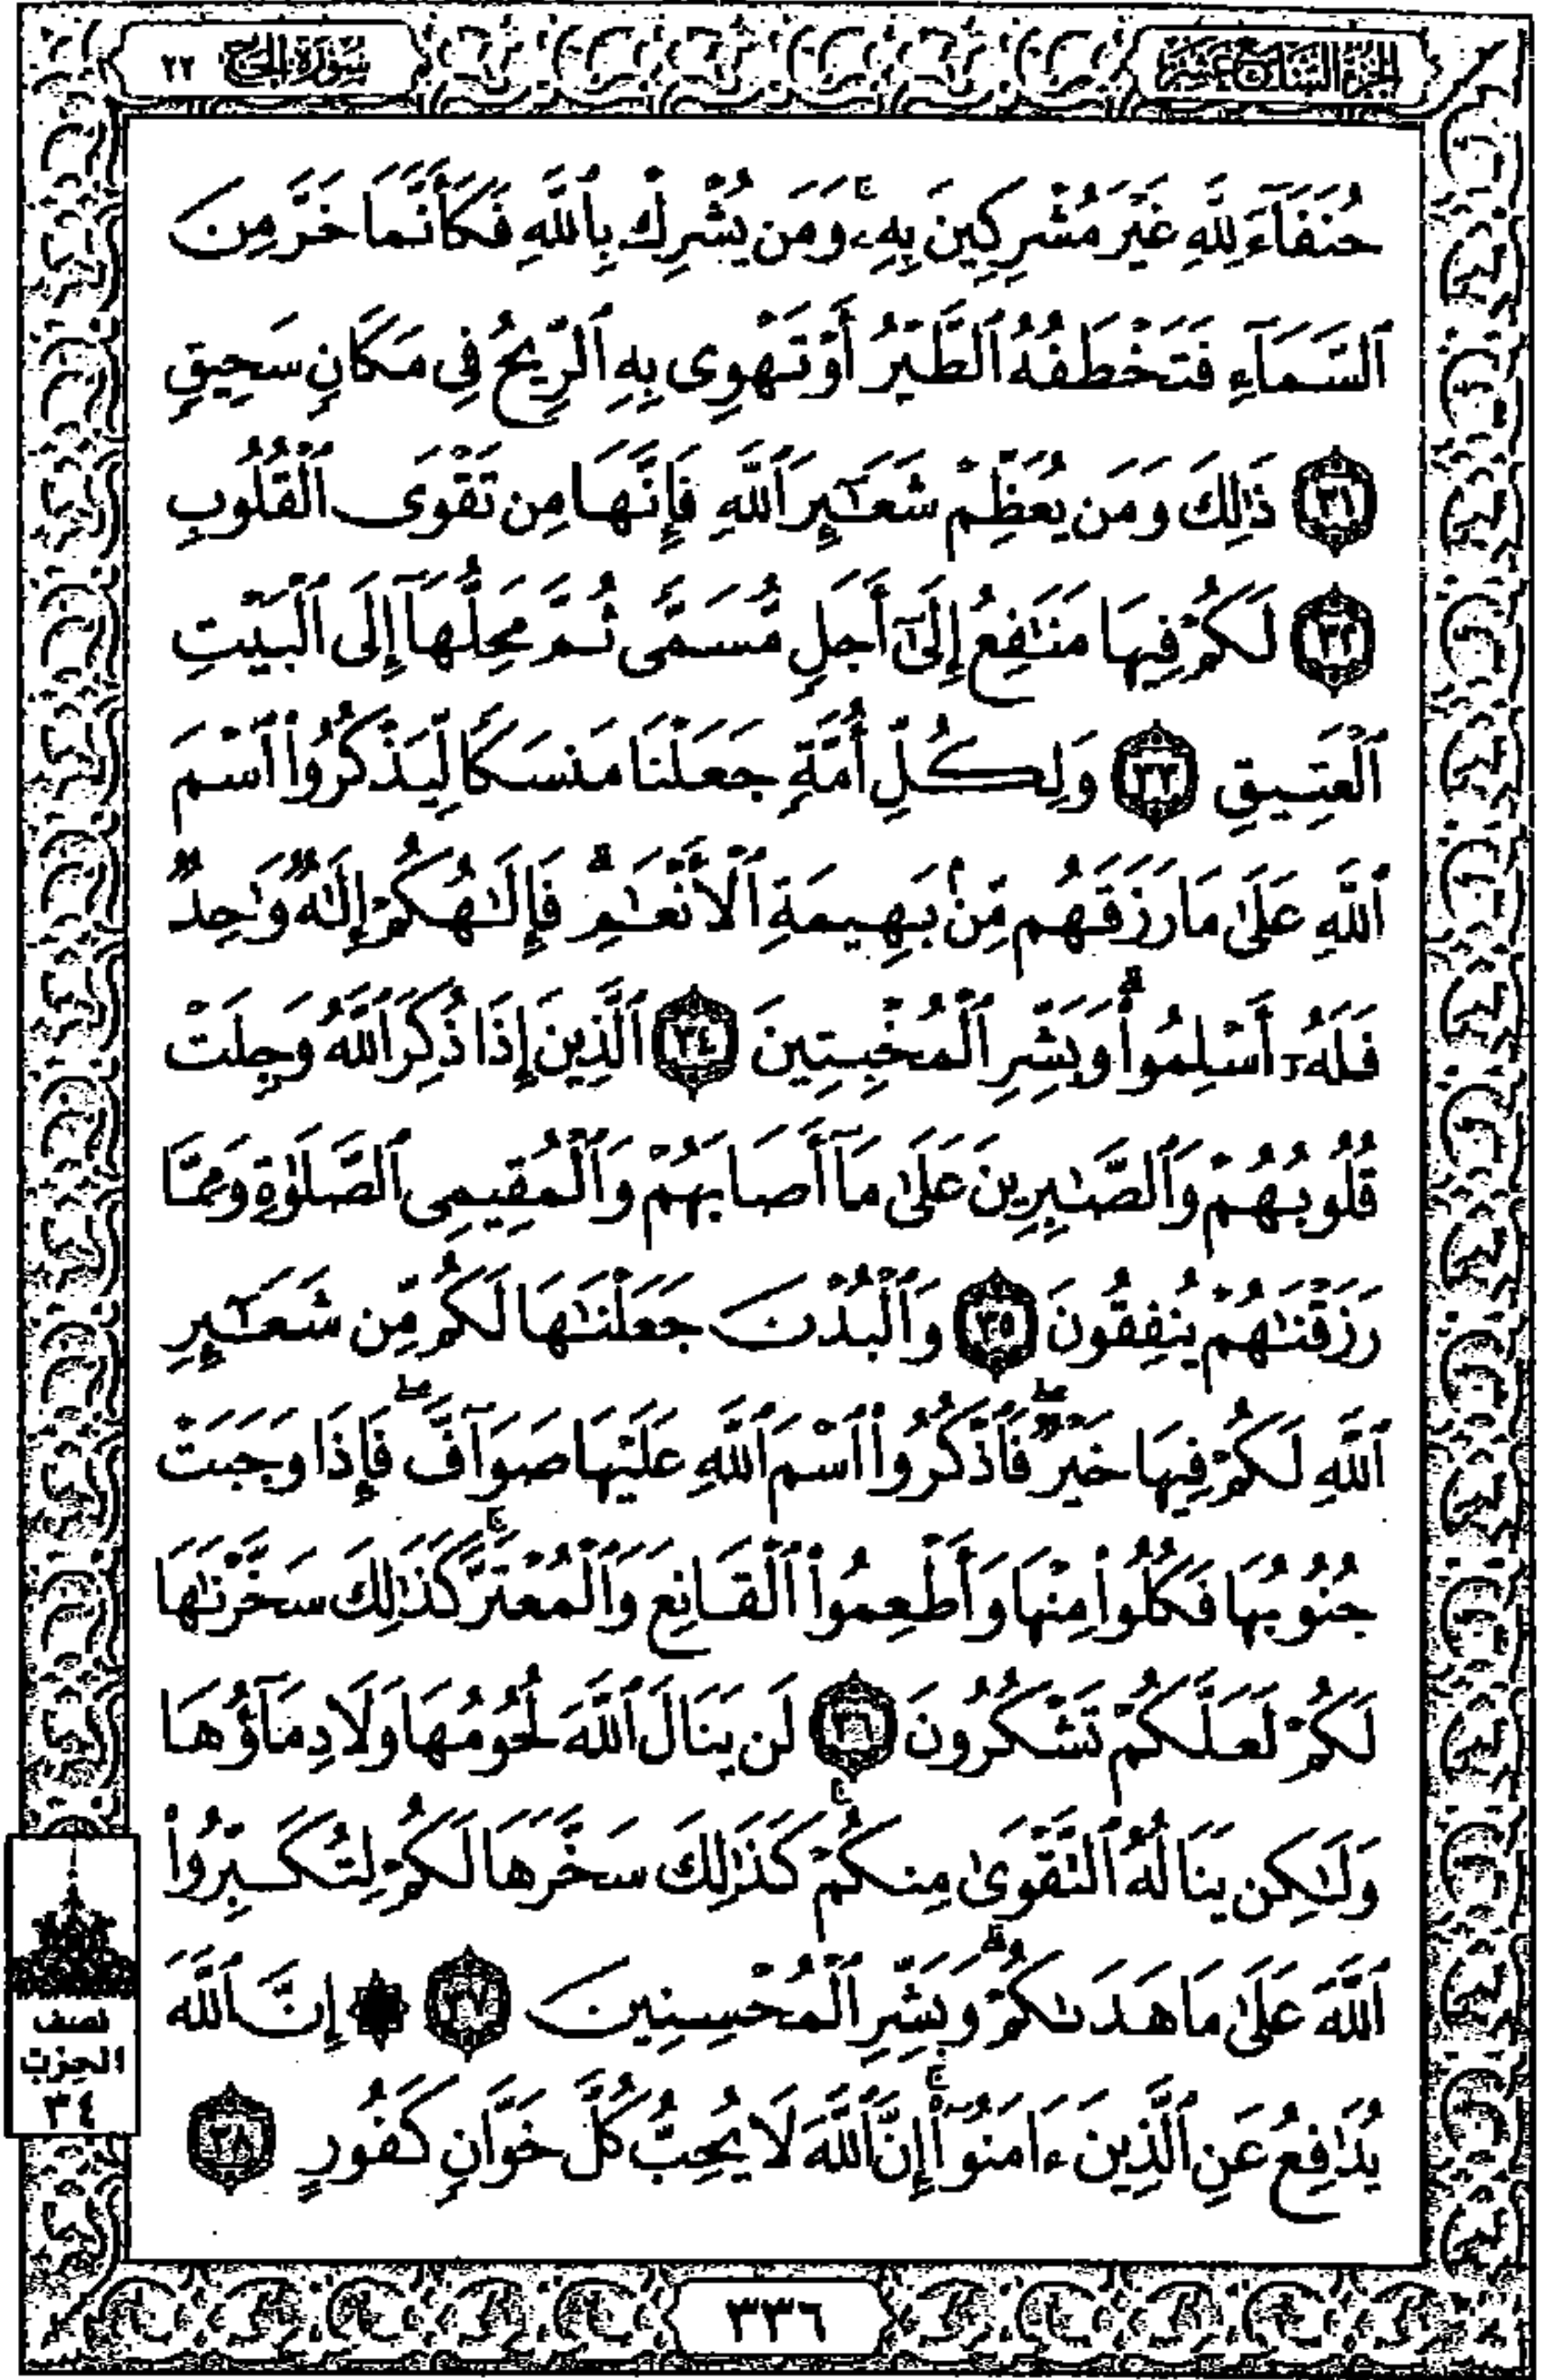 الجزء السابع عشر
سورة الحج ٢٢
حُنَفَآءَ لِلَّهِ غَيْرَ مُشْرِكِينَ بِهِۦۚ وَمَن يُشْرِكْ بِٱللَّهِ فَكَأَنَّمَا خَرَّ مِنَ
ٱلسَّمَآءِ فَتَخْطَفُهُ ٱلطَّيْرُ أَوْ تَهْوِى بِهِ ٱلرِّيحُ فِى مَكَانٍ سَحِيقٍ
٣١ ذَٰلِكَ وَمَن يُعَظِّمْ شَعَـٰٓئِرَ ٱللَّهِ فَإِنَّهَا مِن تَقْوَى ٱلْقُلُوبِ
٣٢ لَكُمْ فِيهَا مَنَـٰفِعُ إِلَىٰٓ أَجَلٍ مُّسَمًّى ثُمَّ مَحِلُّهَآ إِلَى ٱلْبَيْتِ
ٱلْعَتِيقِ ٣٣ وَلِكُلِّ أُمَّةٍ جَعَلْنَا مَنسَكًا لِّيَذْكُرُوا۟ ٱسْمَ
ٱللَّهِ عَلَىٰ مَا رَزَقَهُم مِّنۢ بَهِيمَةِ ٱلْأَنْعَـٰمِۗ فَإِلَـٰهُكُمْ إِلَـٰهٌ وَٰحِدٌ
فَلَهُۥٓ أَسْلِمُوا۟ۗ وَبَشِّرِ ٱلْمُخْبِتِينَ ٣٤ ٱلَّذِينَ إِذَا ذُكِرَ ٱللَّهُ وَجِلَتْ
قُلُوبُهُمْ وَٱلصَّـٰبِرِينَ عَلَىٰ مَآ أَصَابَهُمْ وَٱلْمُقِيمِى ٱلصَّلَوٰةِ وَمِمَّا
رَزَقْنَـٰهُمْ يُنفِقُونَ ٣٥ وَٱلْبُدْنَ جَعَلْنَـٰهَا لَكُم مِّن شَعَـٰٓئِرِ
ٱللَّهِ لَكُمْ فِيهَا خَيْرٌۖ فَٱذْكُرُوا۟ ٱسْمَ ٱللَّهِ عَلَيْهَا صَوَآفَّۖ فَإِذَا وَجَبَتْ
جُنُوبُهَا فَكُلُوا۟ مِنْهَا وَأَطْعِمُوا۟ ٱلْقَانِعَ وَٱلْمُعْتَرَّۚ كَذَٰلِكَ سَخَّرْنَـٰهَا
لَكُمْ لَعَلَّكُمْ تَشْكُرُونَ ٣٦ لَن يَنَالَ ٱللَّهَ لُحُومُهَا وَلَا دِمَآؤُهَا
وَلَـٰكِن يَنَالُهُ ٱلتَّقْوَىٰ مِنكُمْۚ كَذَٰلِكَ سَخَّرَهَا لَكُمْ لِتُكَبِّرُوا۟
ٱللَّهَ عَلَىٰ مَا هَدَىٰكُمْۗ وَبَشِّرِ ٱلْمُحْسِنِينَ ٣٧ ۞ إِنَّ ٱللَّهَ
يُدَٰفِعُ عَنِ ٱلَّذِينَ ءَامَنُوٓا۟ۚ إِنَّ ٱللَّهَ لَا يُحِبُّ كُلَّ خَوَّانٍ كَفُورٍ ٣٨
نصف
الحزب
٣٤
٣٣٦